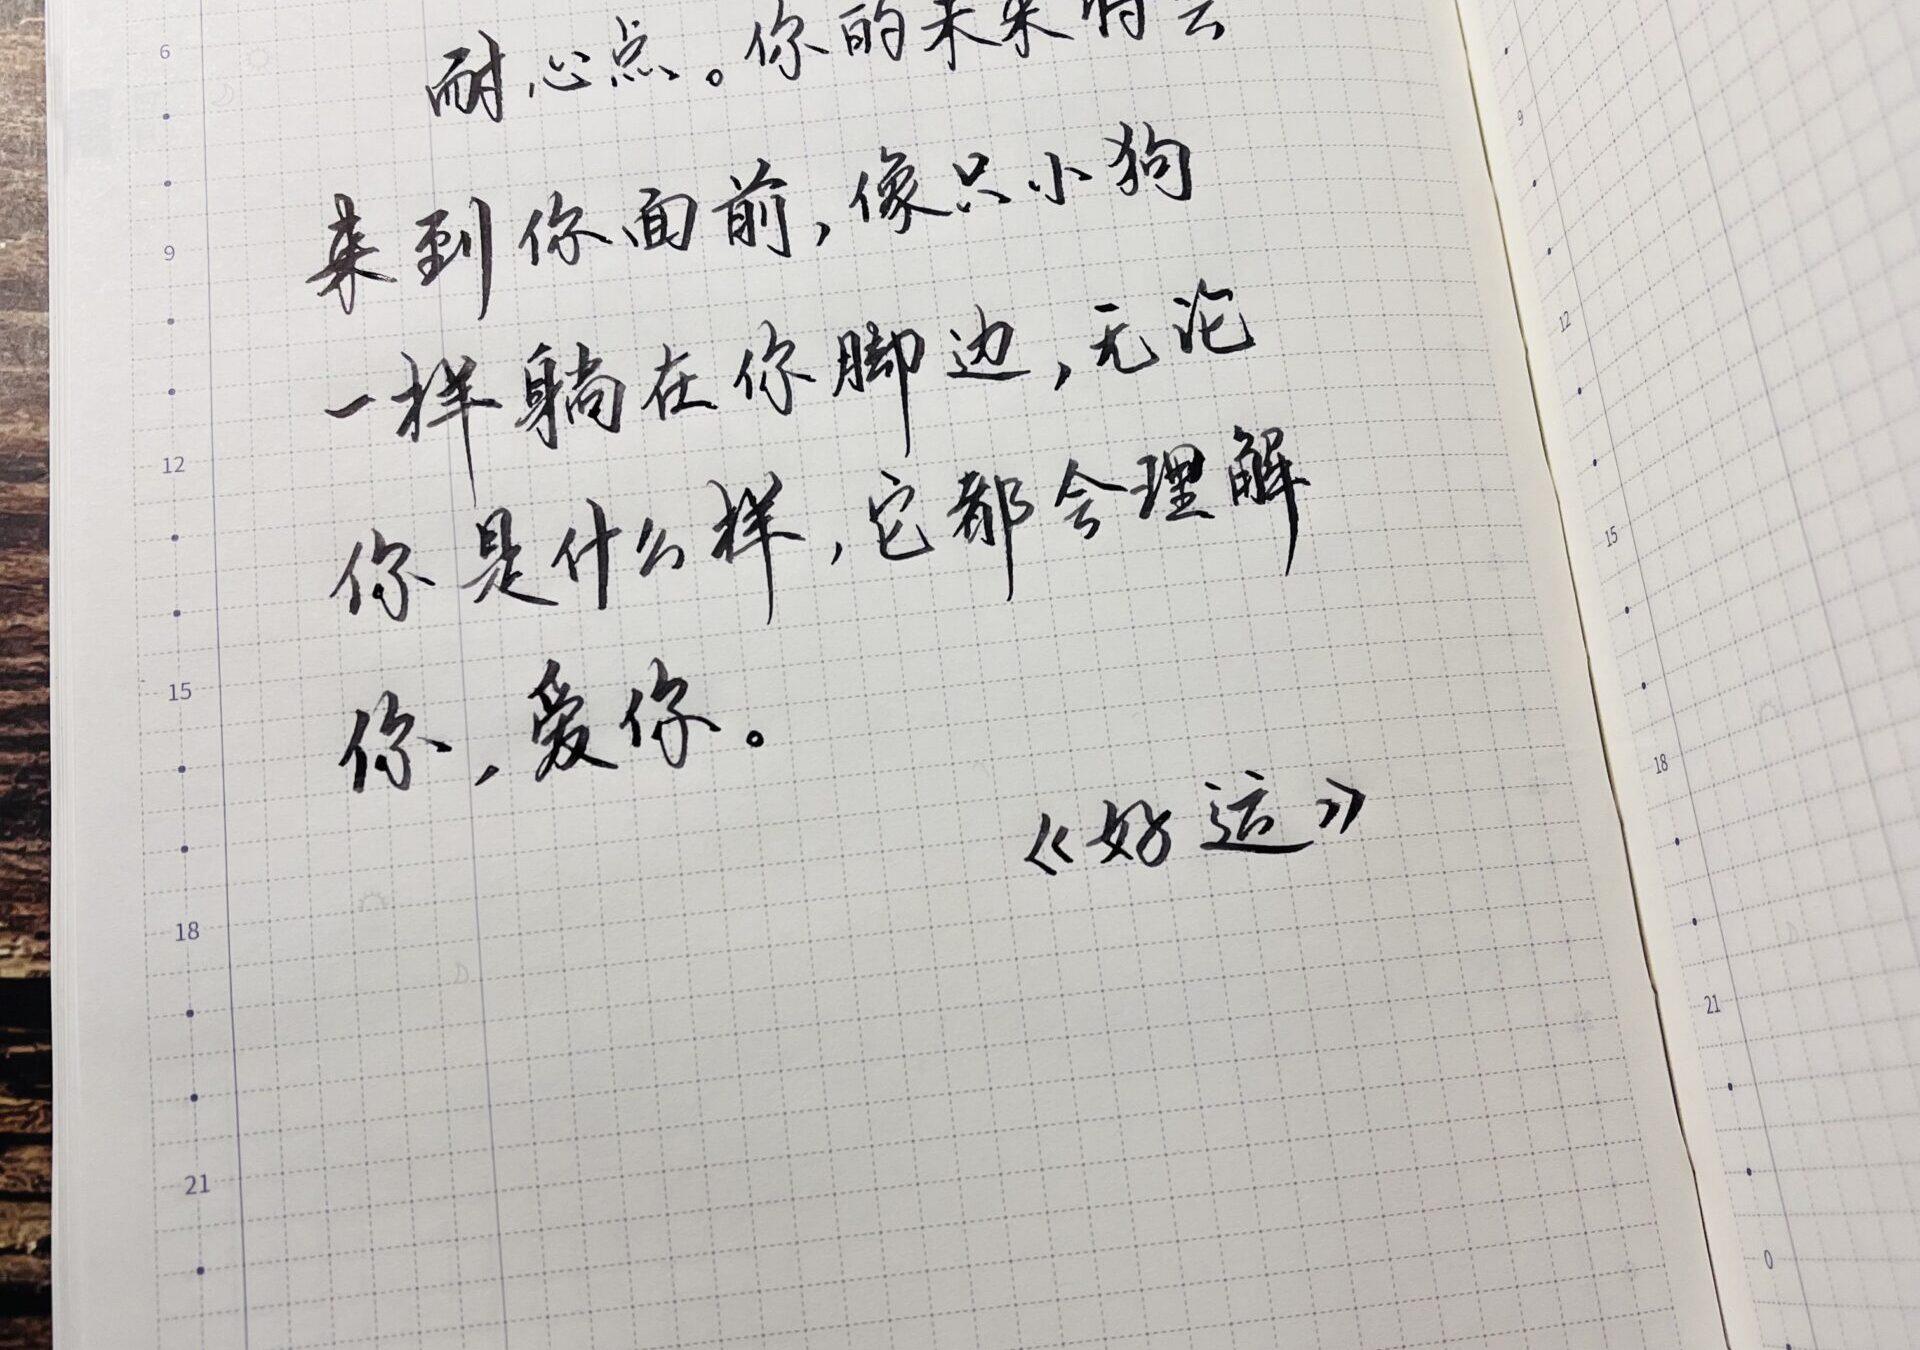 耐心点。你的未来将会
来到你面前，像只小狗
一样躺在你脚边，无论
你是什么样，它都会理解
你，爱你。
《好运》
6
9
12
15
18
21
9
12
15
18
21
0